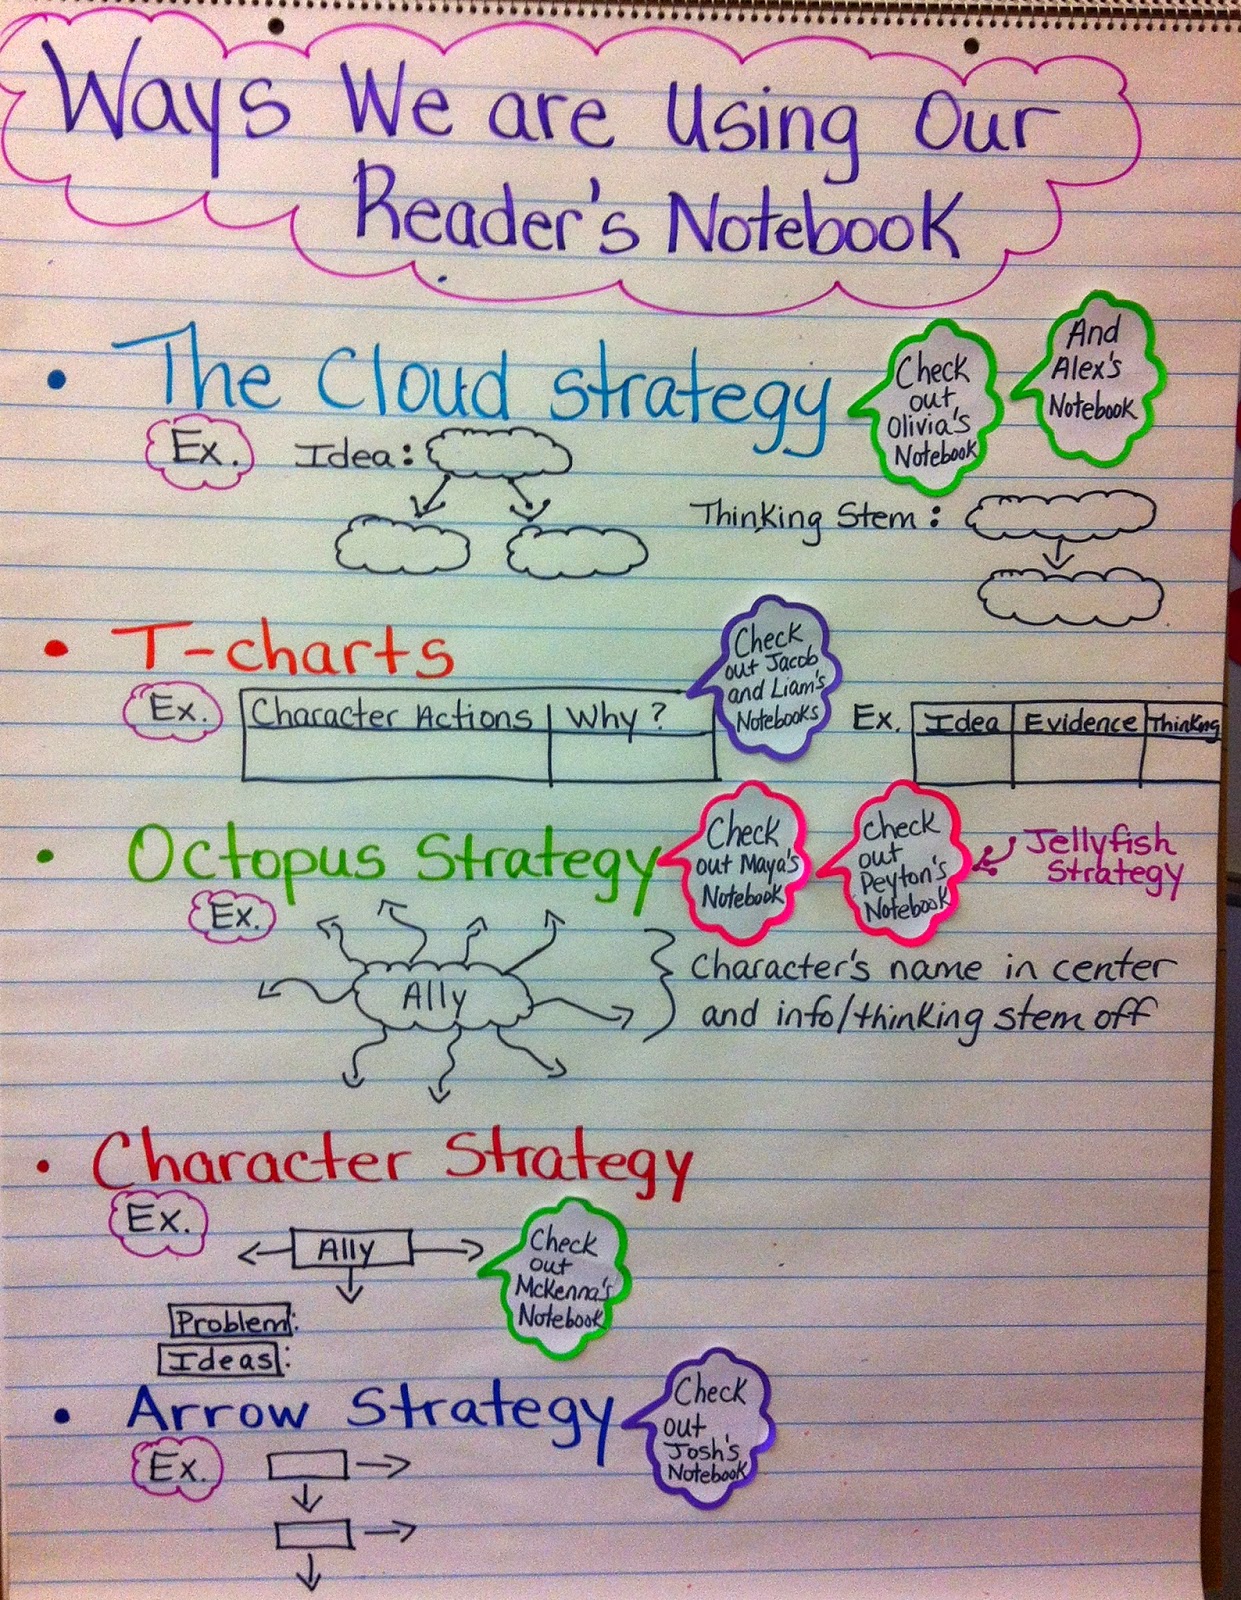 Ways We are Using Our
Reader's Notebook
• The Cloud Strategy
Check
out
Olivia's
Notebook
And
Alex's
Notebook
Ex.
Idea:
Thinking Stem:
• T-charts
Check
out Jacob
and Liam's
Notebooks
Ex.
Character Actions Why?
Ex.
Idea Evidence Thinking
• Octopus Strategy
Check
out Maya's
Notebook
Check
out
Peyton's
Notebook
Jellyfish
Strategy
Ex.
Ally
Character's name in center
and info/thinking stem off
• Character Strategy
Ex.
Ally
Check
out
McKenna's
Notebook
Problem:
Ideas:
• Arrow Strategy
Check
out
Josh's
Notebook
Ex.